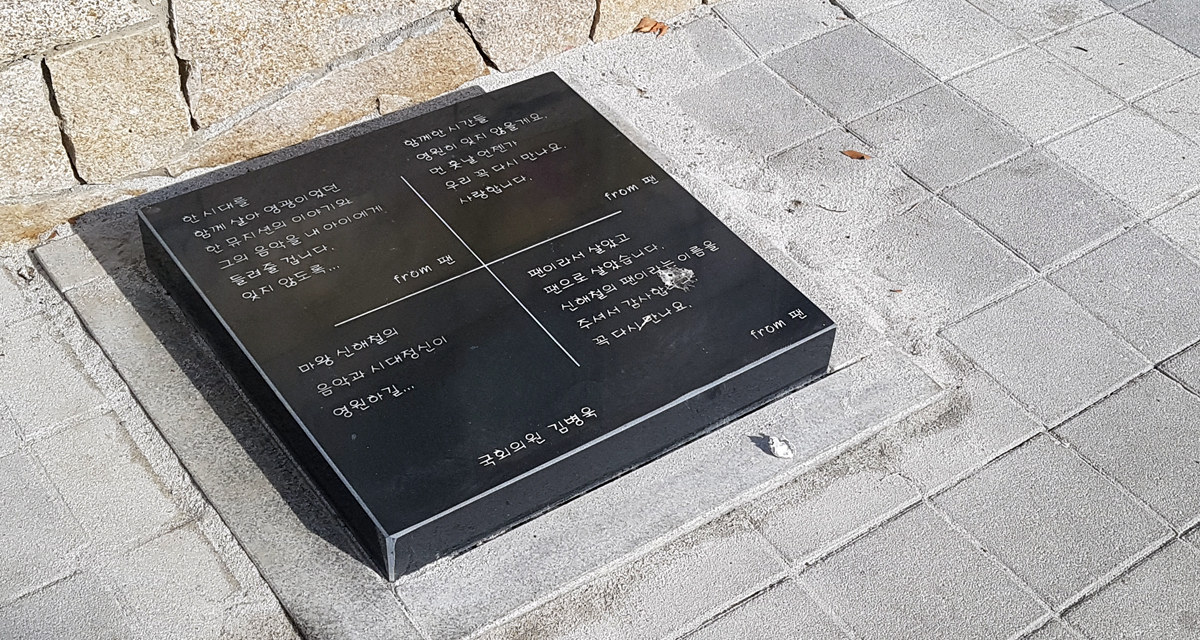 한 시대를
함께 살아 영광이었던
한 뮤지션의 이야기와
그의 음악을 내 아이에게
들려줄 겁니다.
잊지 않도록...
from 팬
함께한 시간들
영원히 잊지 않을게요.
먼 훗날 언젠가
우리 꼭 다시 만나요.
사랑합니다.
from 팬
마왕 신해철의
음악과 시대정신이
영원하길...
국회의원 김병욱
팬이라서 살았고
팬으로 살았습니다.
신해철의 팬이라는 이름을
주셔서
꼭 다시 만나요.
from 팬